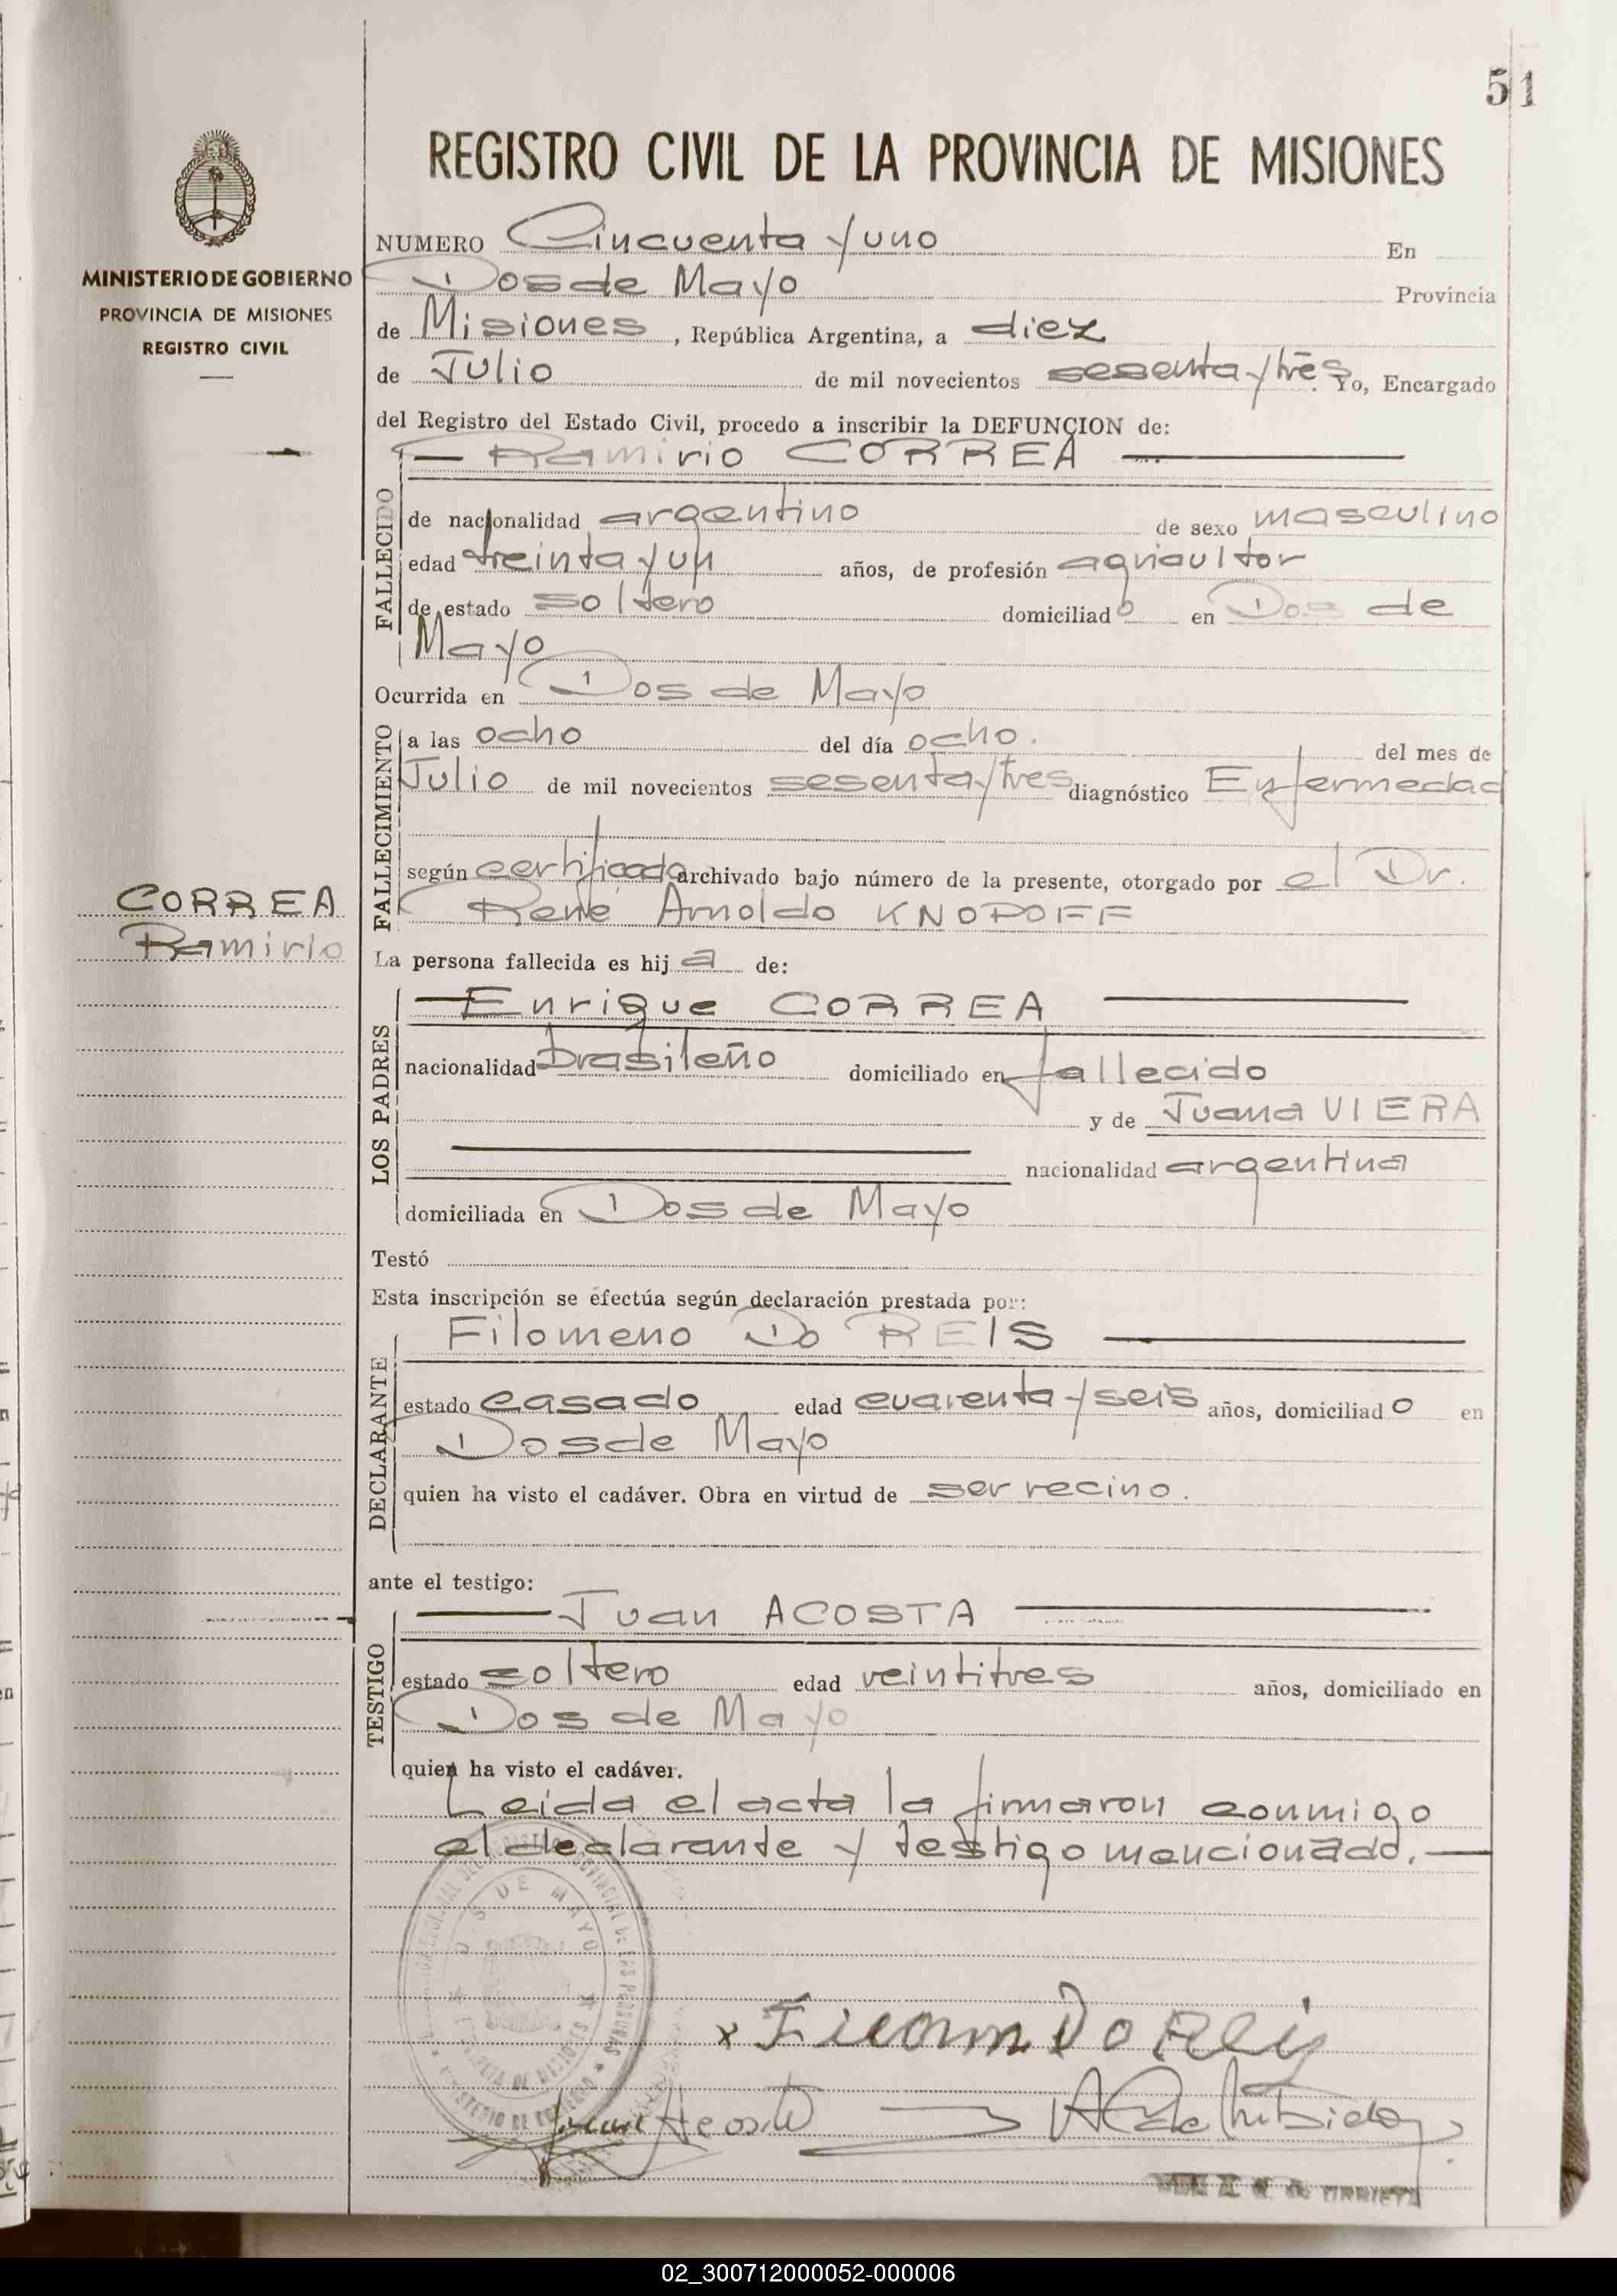 51
REGISTRO CIVIL DE LA PROVINCIA DE MISIONES
MINISTERIO DE GOBIERNO
PROVINCIA DE MISIONES
REGISTRO CIVIL
CORREA
Ramirio
NUMERO Cincuenta y uno En
Dos de Mayo Provincia
de Misiones, República Argentina, a diez
de Julio de mil novecientos sesenta y tres. Yo, Encargado
del Registro del Estado Civil, procedo a inscribir la DEFUNCION de:
Ramirio CORREA
FALLECIDO
de nacionalidad argentino de sexo masculino
edad treinta y un años, de profesión agricultor
de estado soltero domiciliado en Dos de
Mayo
Ocurrida en Dos de Mayo
FALLECIMIENTO
a las ocho del día ocho. del mes de
Julio de mil novecientos sesenta y tres diagnóstico Enfermedad
según certificado archivado bajo número de la presente, otorgado por el Dr.
René Arnoldo KNOPOFF
La persona fallecida es hij a de:
LOS PADRES
Enrique CORREA
nacionalidad brasileño domiciliado en fallecido
y de Juana VIERA
nacionalidad argentina
domiciliada en Dos de Mayo
Testó
Esta inscripción se efectúa según declaración prestada por:
Filomeno Do REIS
DECLARANTE
estado casado edad cuarenta y seis años, domiciliado en
Dos de Mayo
quien ha visto el cadáver. Obra en virtud de ser vecino.
ante el testigo:
Juan ACOSTA
TESTIGO
estado soltero edad veintitres años, domiciliado en
Dos de Mayo
quien ha visto el cadáver.
Leida el acta la firmaron conmigo
el declarante y testigo mencionado.
DOS DE MAYO
x Do Reis
Juan Acosta
02_300712000052-000006